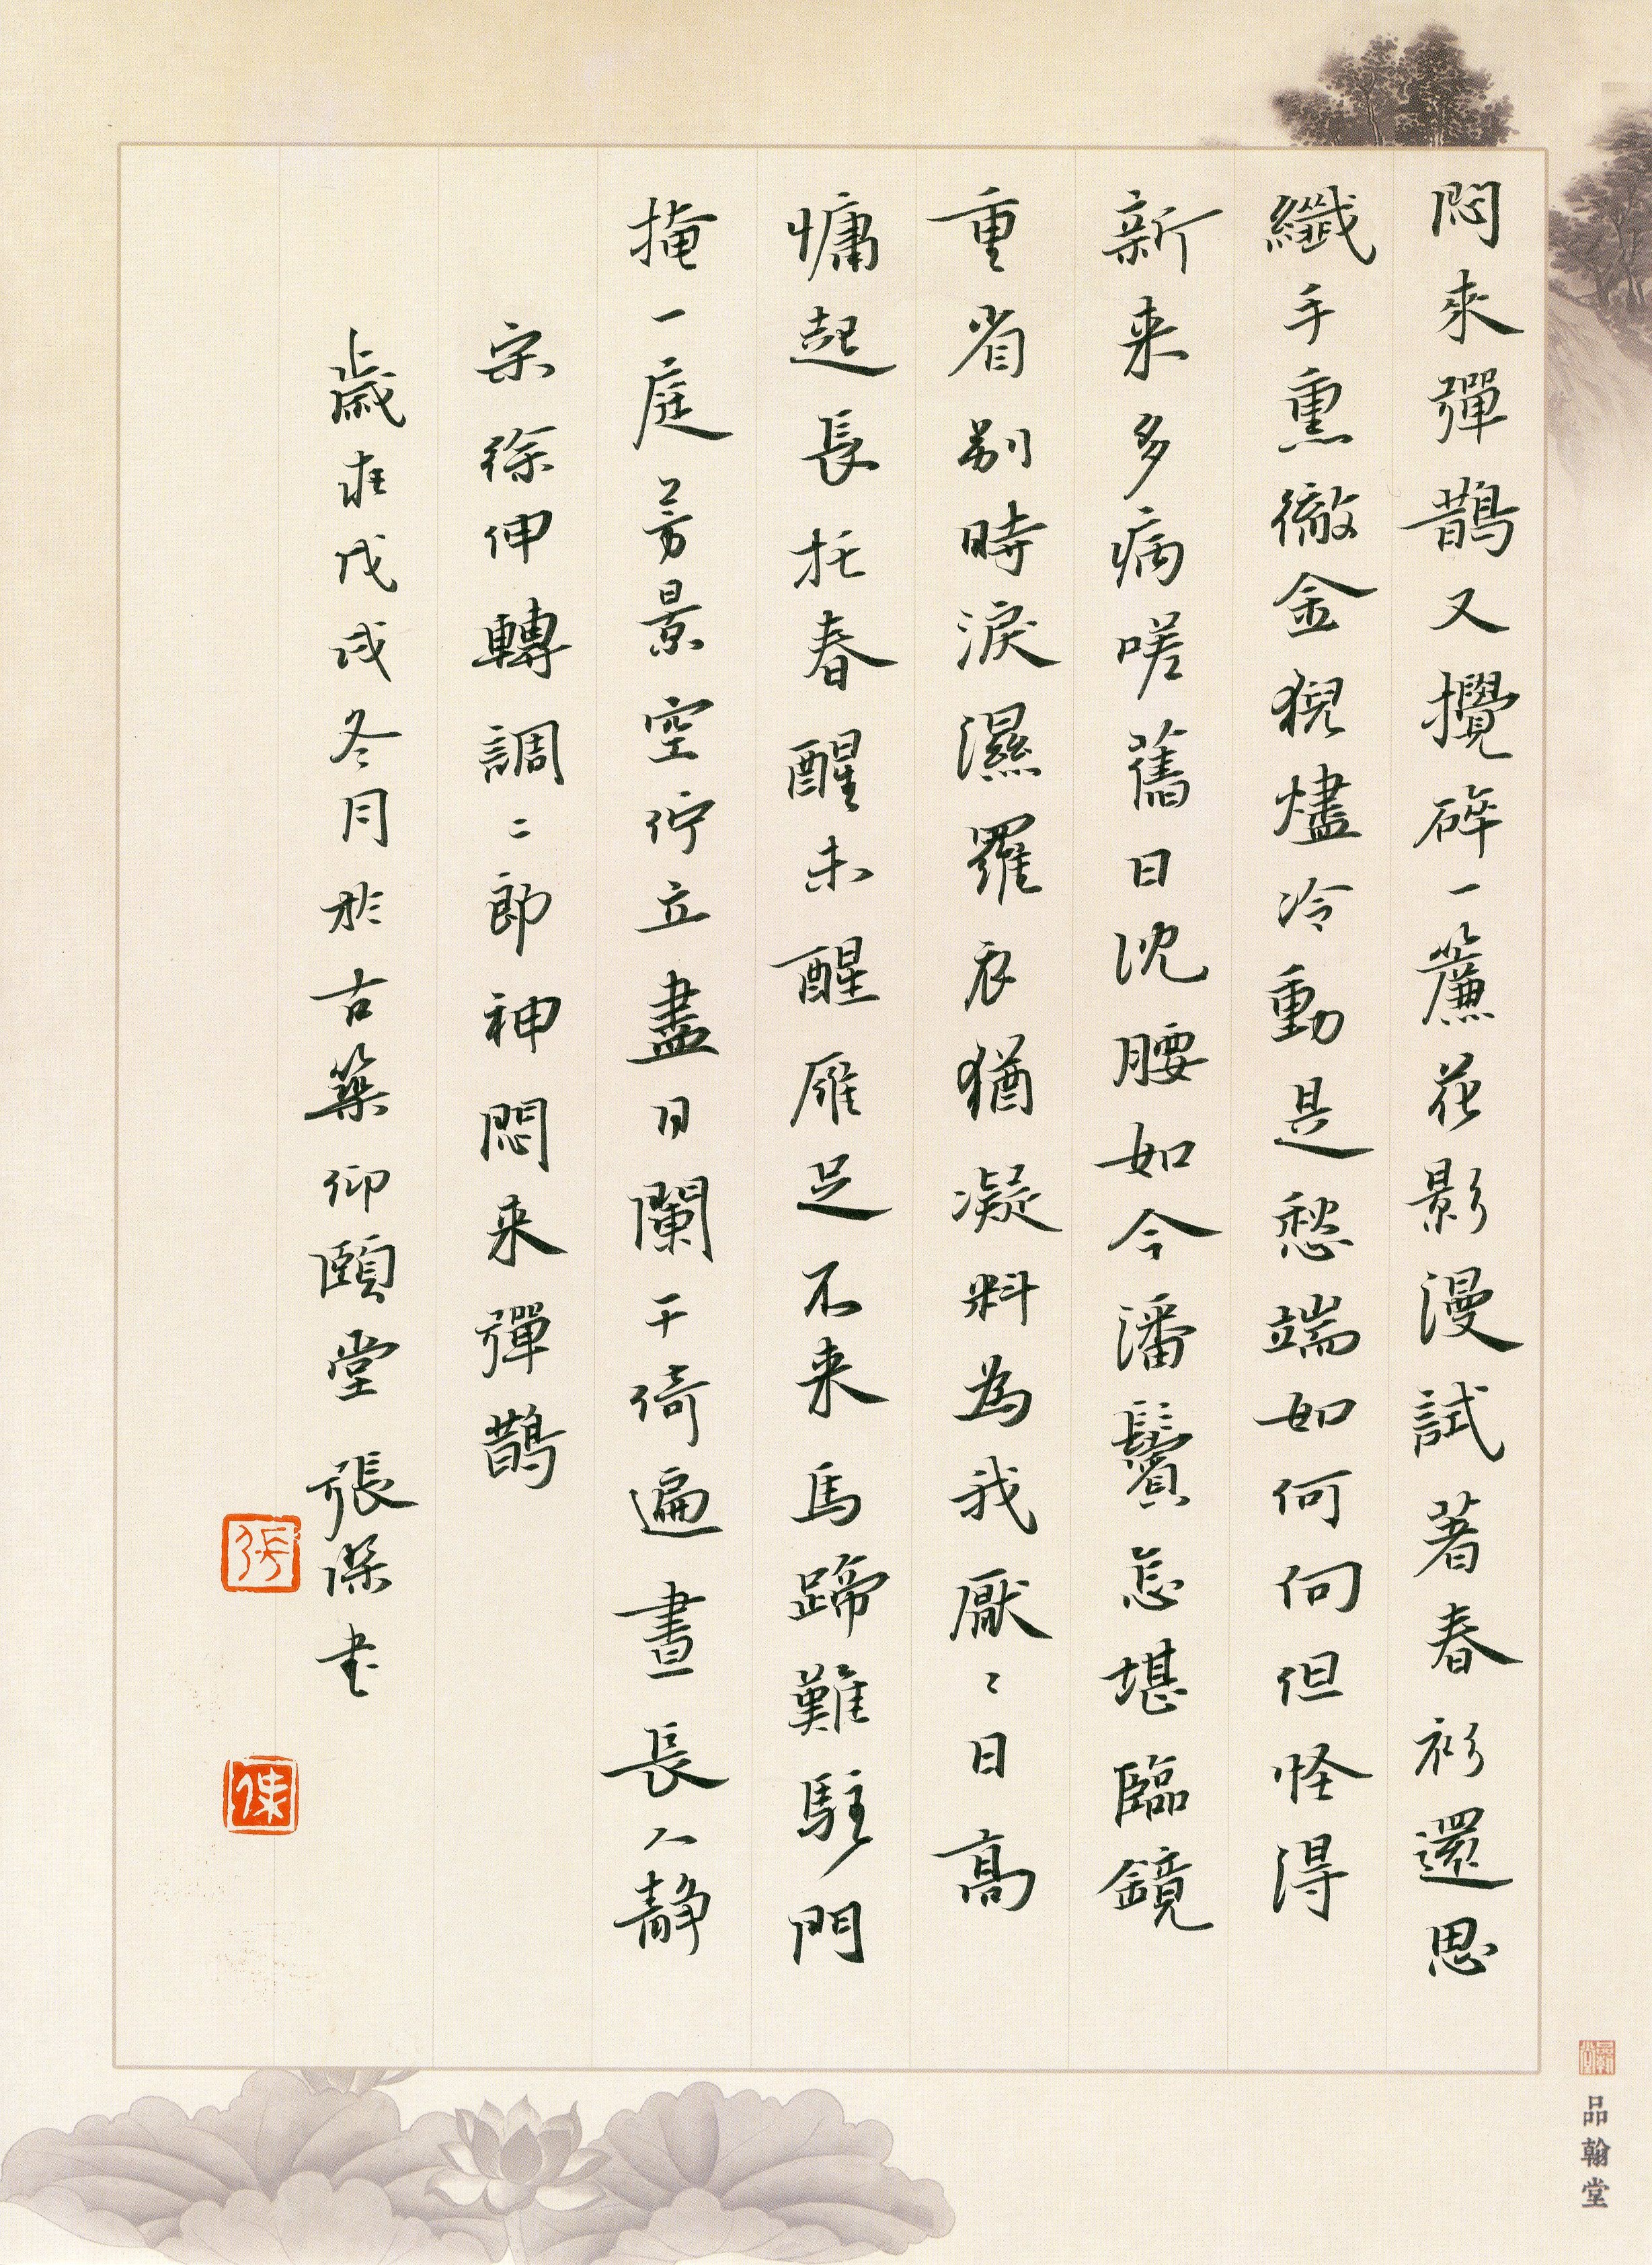 悶來彈鵲又攪碎一簾花影漫試著春衫還思
纖手熏徹金猊燼冷動是愁端如何向但怪得
新来多病嗟舊日沈腰如今潘鬢怎堪臨鏡
重省别時淚濕羅衣猶凝料為我厭〻日高
慵起長托春醒未醒雁足不来馬蹄難駐門
掩一庭芳景空佇立盡日闌干倚遍晝長人静
宗徐伸轉調〻二郎神悶来彈鵲
歲在戊戌冬月於古築仰頤堂 張深书
张
品翰堂